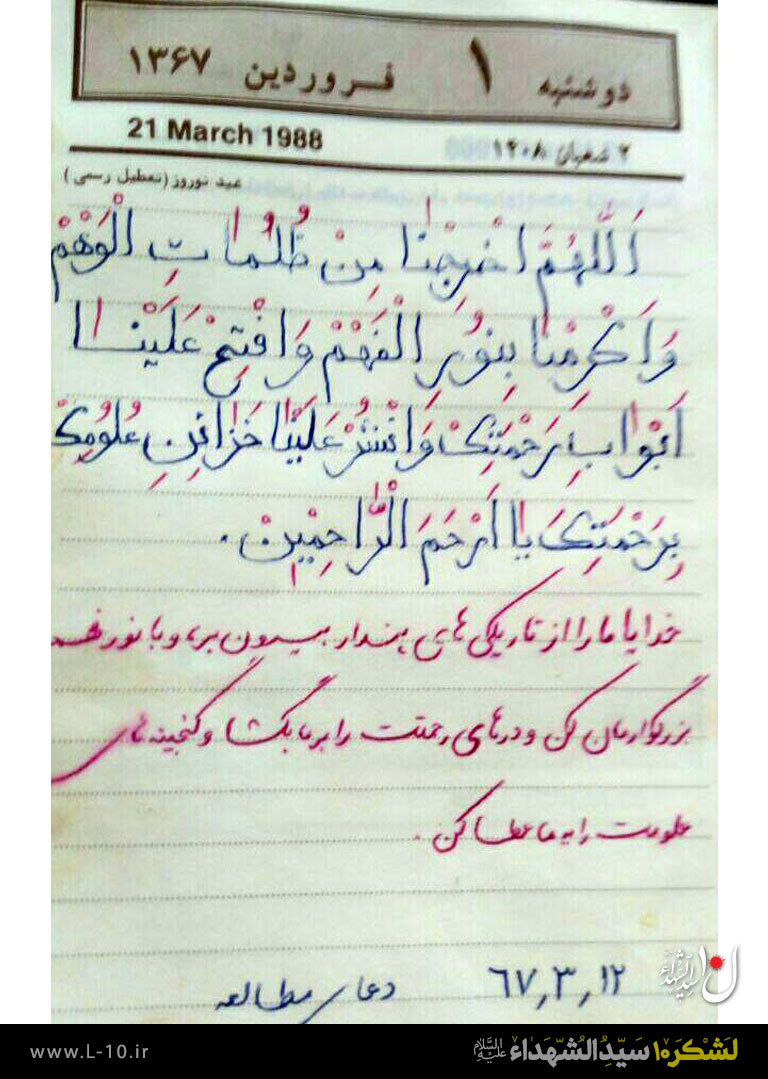 دوشنبه ۱ فروردین ۱۳۶۷
۲ شعبان ۱۴۰۸ 21 March 1988
عید نوروز (تعطیل رسمی)
اَللّهُمَّ اَخْرِجْنا مِنْ ظُلُماتِ الْوَهْمْ
وَ اَکْرِمْنا بِنوُرِ الْفَهْمْ وَ افْتِحْ عَلَیْنا
اَبْوابِ رَحْمَتِکْ وَ انْشُرْ عَلَیْنا خَزائِنِ عُلوُمِکْ
بِرَحْمَتِکَ یا اَرْحَمَ الْرّاحِمْینْ.
خدایا ما را از تاریکی های پندار بیرون بر، و با نور فهم
بزرگوارمان کن و درهای رحمتت را بر ما بگشا و گنجینه های
علومت را به ما عطا کن.
۶۷,۳,۱۲ دعای مطالعه
ل۱۰ سیدالشهداء
www.L-10.ir لَشْکَر۱۰ سَیِّدُالشُّهَداء عَلَیْهِ السَّلام